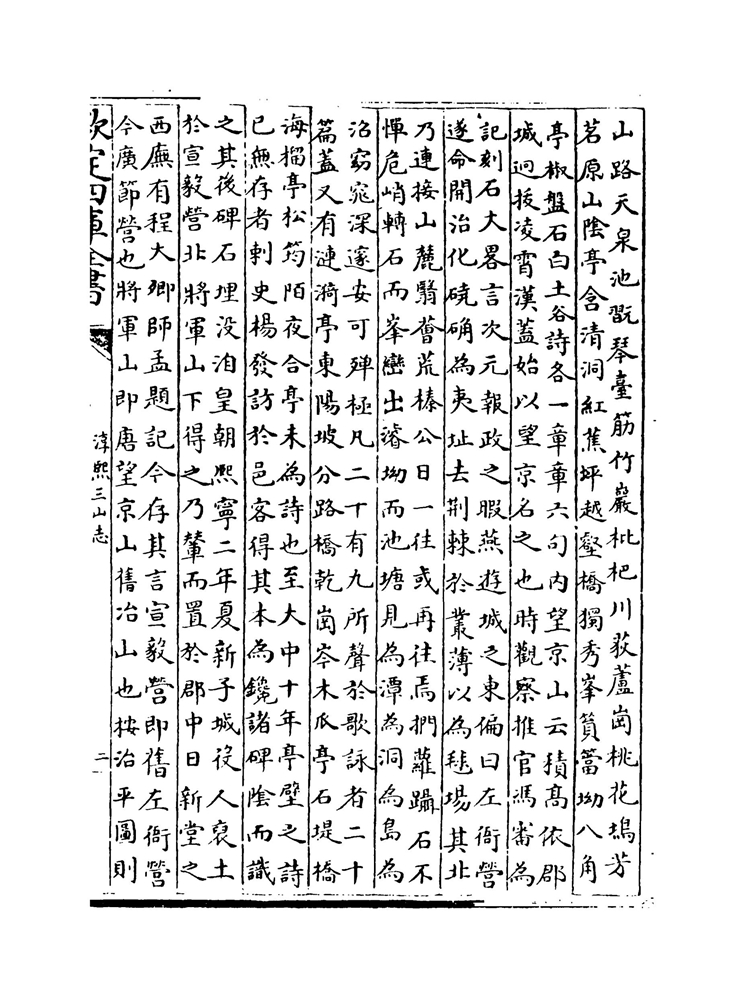 山路天泉池翫琴臺筋竹巖枇杷川荻蘆崗桃花塢芳
茗原山陰亭含清洞紅蕉坪越壑橋獨秀峯篔簹坳八角
亭椒盤石白土谷詩各一章章六句内望京山云積髙依郡
城迥拔凌霄漢蓋始以望京名之也時觀察推官馮審為
記刻石大畧言次元報政之暇燕遊城之東偏曰左衙營
遂命開治化磽确為夷址去荆棘於叢薄以為毬場其北
乃連接山麓翳薈荒榛公日一往或再往焉捫蘿躡石不
憚危峭轉石而峯巒出濬坳而池塘見為潭為洞為島為
沼窈窕深邃安可殫極凡二十有九所聲於歌詠者二十
篇蓋又有漣漪亭東陽坡分路橋乾崗岑木瓜亭石堤橋
海榴亭松筠陌夜合亭未為詩也至大中十年亭壁之詩
已無存者刺史楊發訪於邑客得其本為鑱諸碑陰而識
之其後碑石埋没洎皇朝熙寧二年夏新子城役人裒土
於宣毅營北將軍山下得之乃輦而置於郡中日新堂之
西廡有程大卿師孟題記今存其言宣毅營即舊左衙營
今廣節營也將軍山即唐望京山舊冶山也按治平圖則
欽定四庫全書
淳熙三山志
二